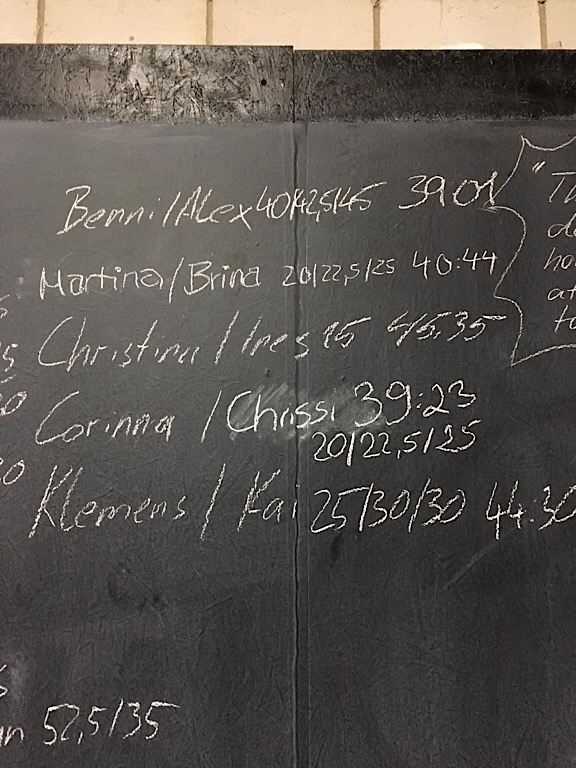 Benni/Alex 40/42,5/45 3901
Martina/Brina 20/22,5/25 40:44
Christina/Ines 15 45.35
Corinna / Chrissi 39:23
20/22,5/25
Klemens / Kai 25/30/30 44:30
52,5/35